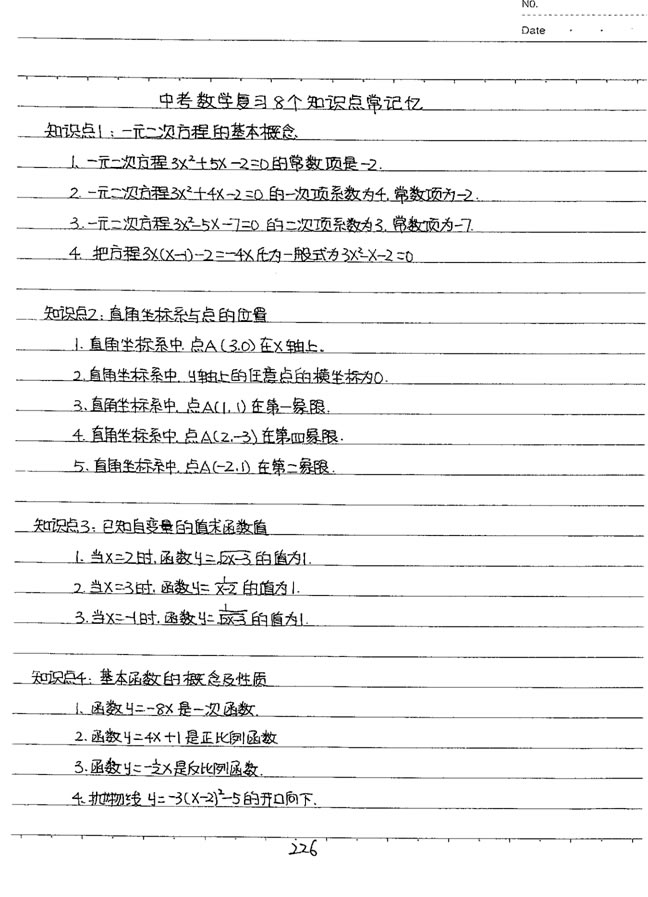 No.
Date
中考数学复习8个知识点常记忆
知识点1:一元二次方程的基本概念
1、一元二次方程3x²+5x-2=0的常数项是-2.
2.一元二次方程3x²+4x-2=0的一次项系数为4,常数项为-2.
3.一元二次方程3x²-5x-7=0的二次项系数为3,常数项为-7.
4. 把方程3x(x-1)-2=-4x化为一般式为3x²-x-2=0
知识点2:直角坐标系与点的位置
1.直角坐标系中,点A(3.0)在x轴上。
2.直角坐标系中,y轴上的任意点的横坐标为0.
3.直角坐标系中,点A(1,1)在第一象限.
4.直角坐标系中,点A(2,-3)在第四象限.
5.直角坐标系中,点A(-2,1)在第二象限.
知识点3:已知自变量的值求函数值
1.当x=2时,函数y=√2x-3的值为1.
2.当x=3时,函数y=1/x-2的值为1.
3.当x=-1时,函数y=的值为1.
知识点4:基本函数的概念及性质
1、函数y=-8x是一次函数.
2.函数y=4x+1是正比例函数
3.函数y=-½x是反比例函数.
4.抛物线y=-3(x-2)²-5的开口向下.
226